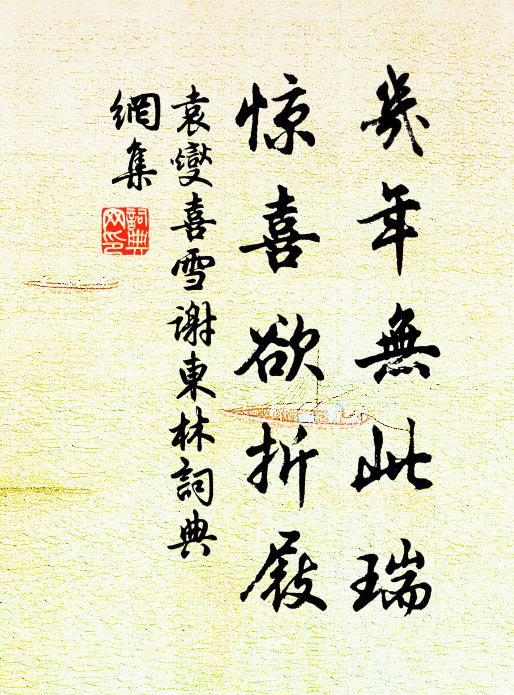 幾年無此瑞
惊喜欲折屐
袁燮喜雪谢東林詞典
網集
詞典网印